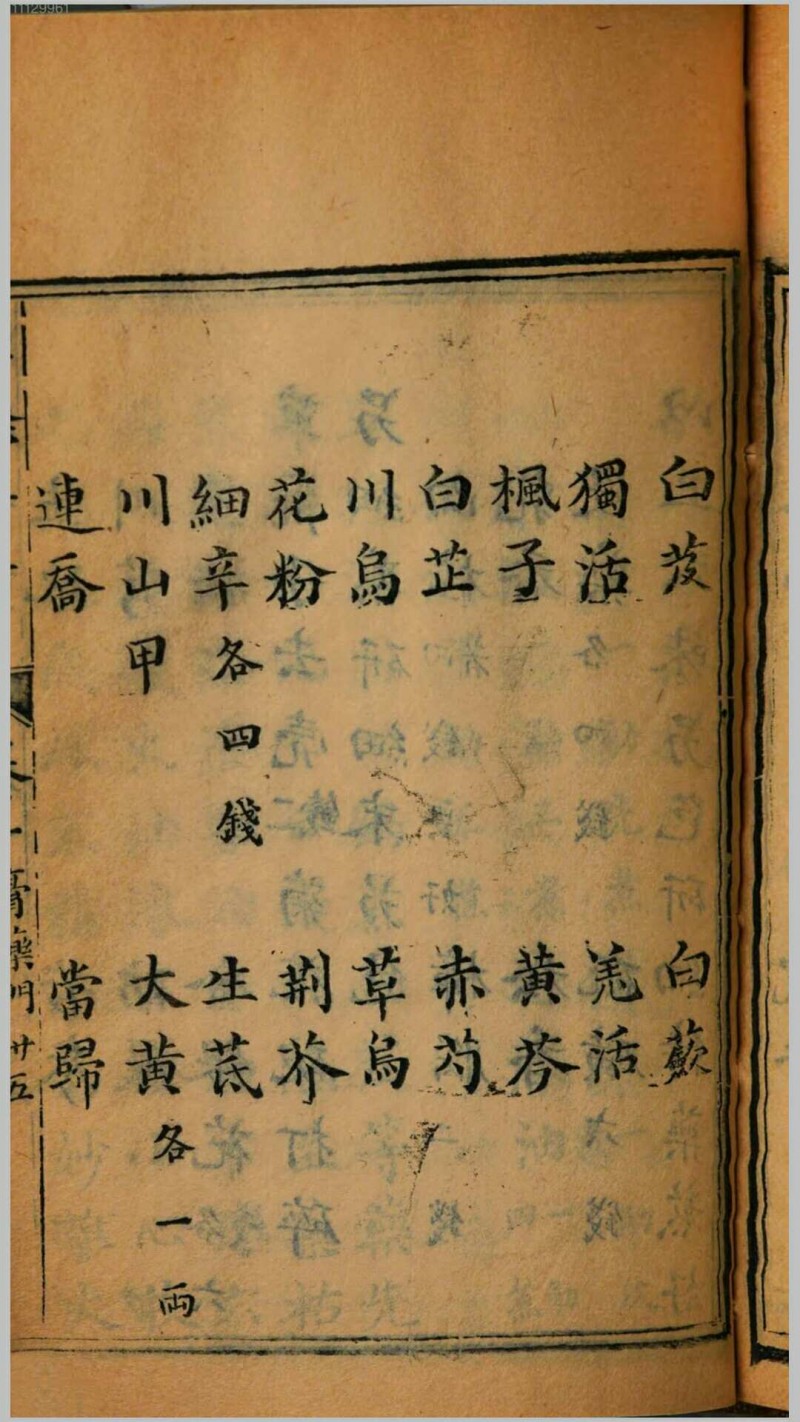 11129961
白芨 白蘞
獨活 羌活
楓子 黄芩
白芷 赤芍
川烏 草烏
花粉 荆芥
細辛各四錢 生芪
川山甲 大黄各一両
連喬 當歸
膏藥門 卅五